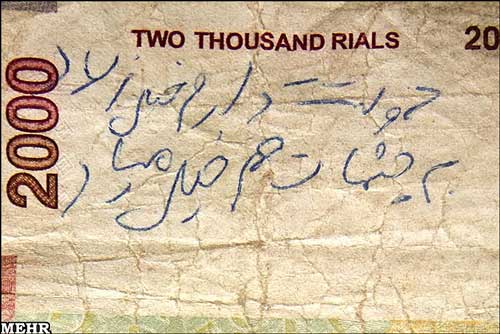 TWO THOUSAND RIALS
20
2000
دوست دارم خیلی زیاد
به چشمات هم خیلی میاد
MEHR